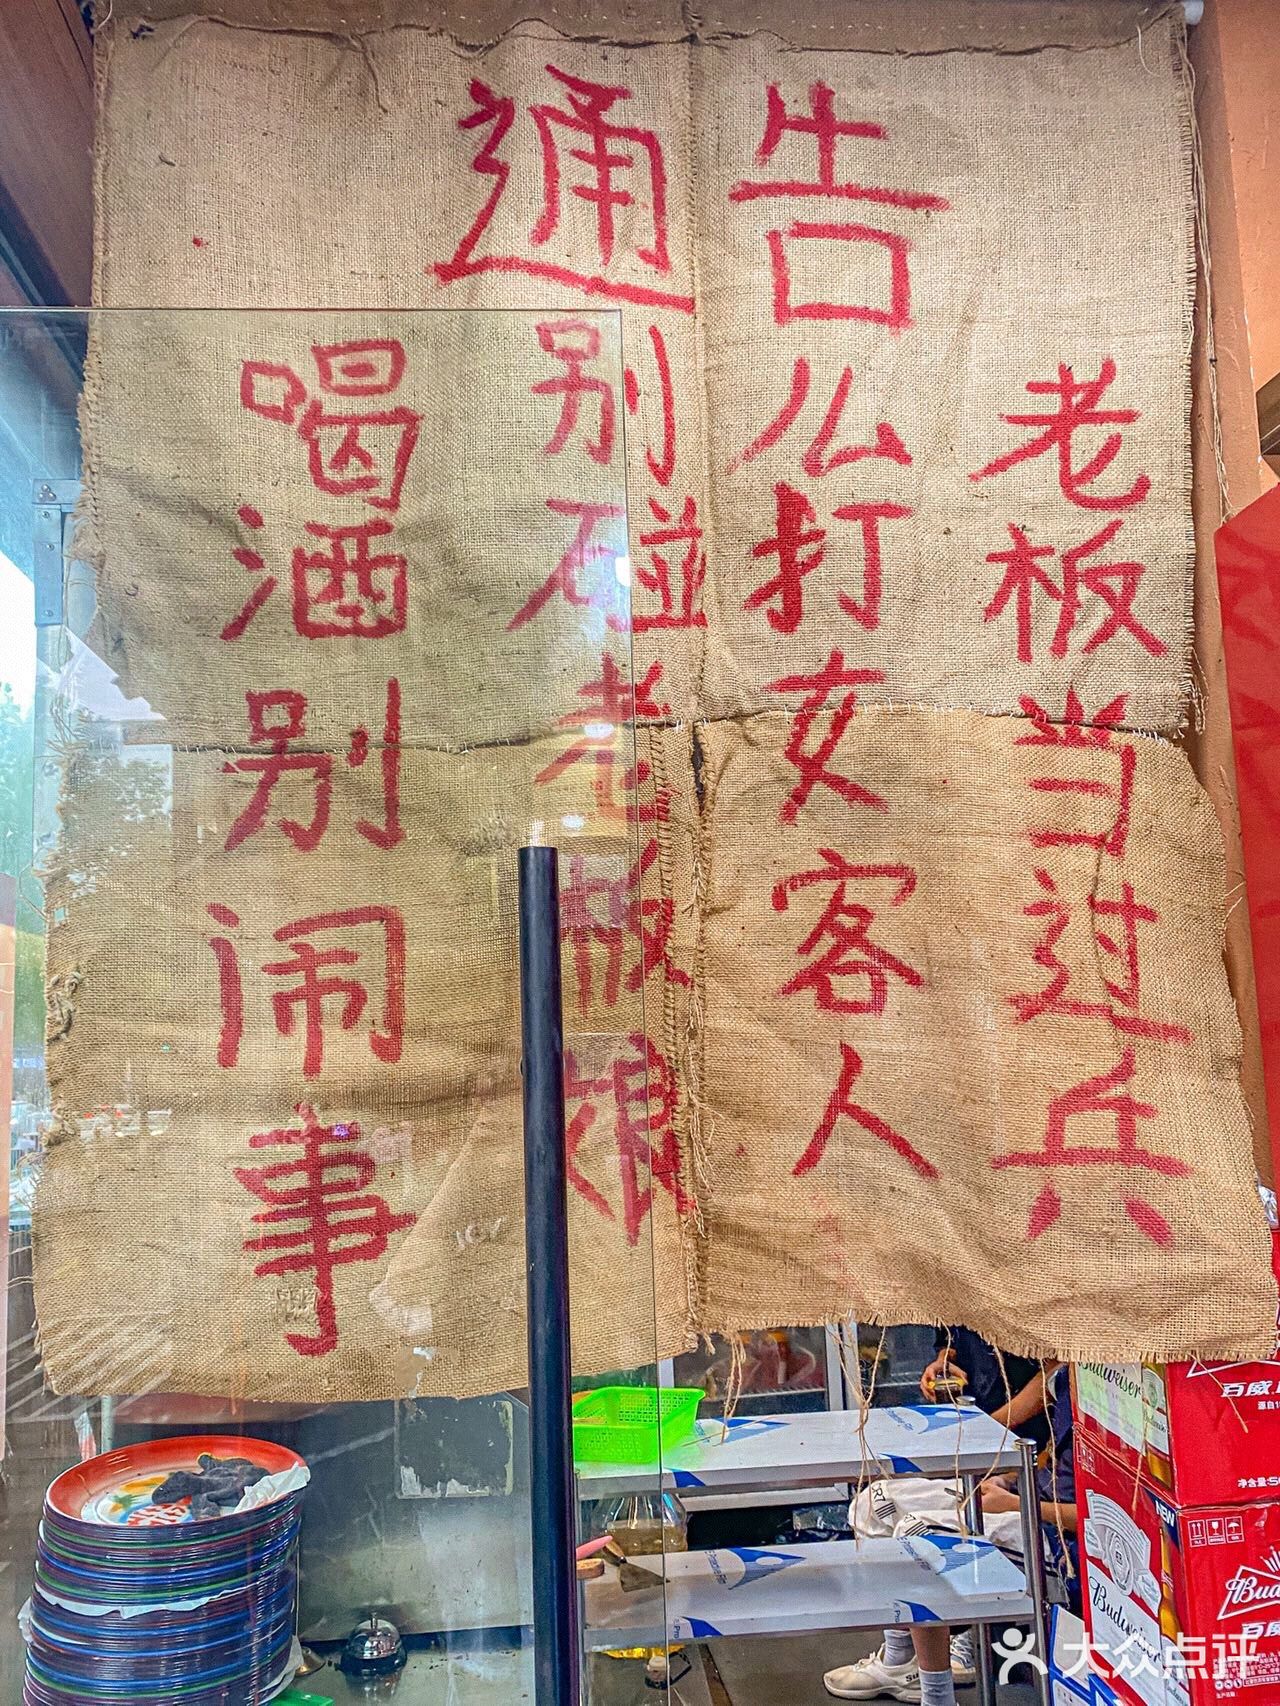 通告
老板当过兵
么打女客人
别碰老板娘
喝酒别闹事
Budweiser
百威
NEW
Budweiser
百威
大众点评